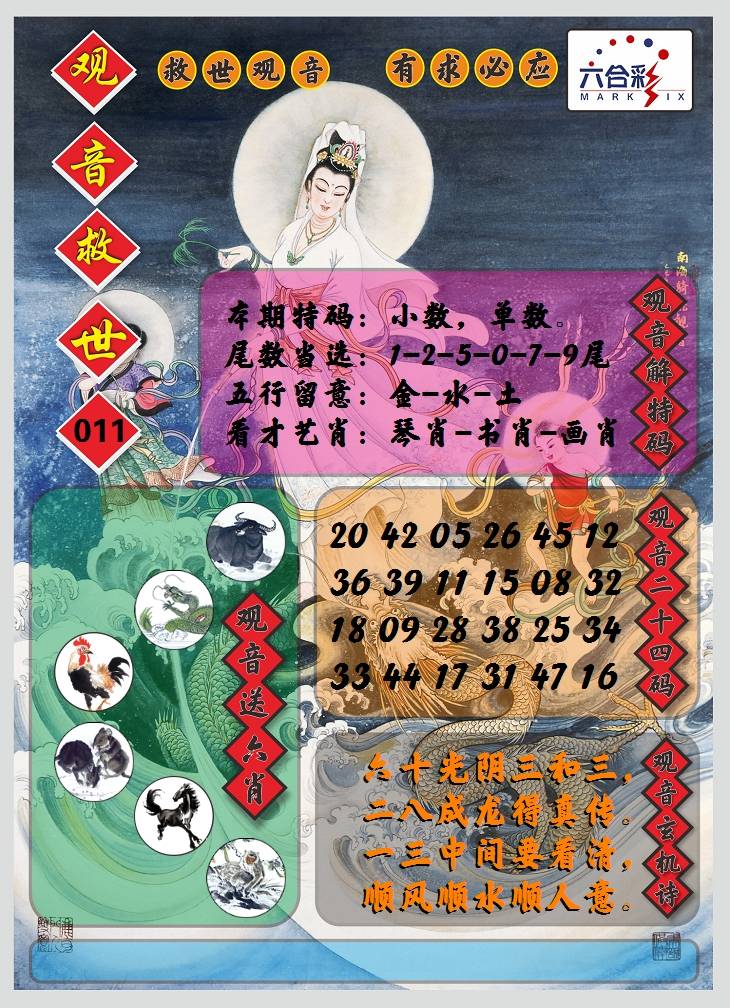 救世观音 有求必应
六合彩
MARK SIX
观音救世
011
观音解特码
本期特码：小数，单数。
尾数当选：1-2-5-0-7-9尾
五行留意：金-水-土
看才艺肖：琴肖-书肖-画肖
观音送六肖
观音二十四码
20 42 05 26 45 12
36 39 11 15 08 32
18 09 28 38 25 34
33 44 17 31 47 16
观音玄机诗
六十光阴三和三，
二八成龙得真传。
一三中间要看清，
顺风顺水顺人意。